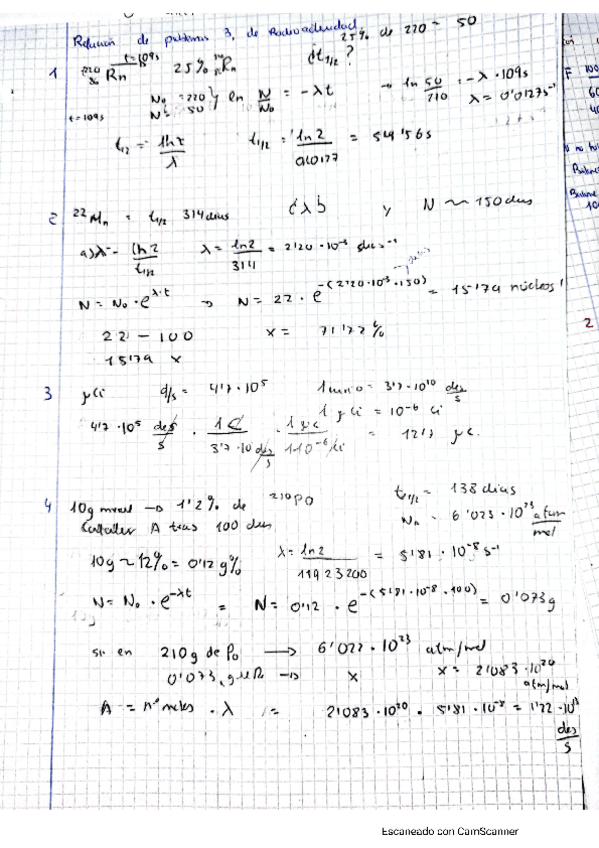 Relación de problemas 3, de Radioactividad.
25% de 220 = 50
t=109s
1 220 86 Rn 25% Rn ¿t1/2?
N0 = 220 } ln N/N0 = -λt → ln 50/210 = -λ · 109s
t=109s N = 50 λ = 0'0127s⁻¹
t1/2 = ln2/λ t1/2 = ln2/0,0127 = 54'56s
2 22 Mn = t1/2 314 dias ¿λ? y N ~ 150 dias
a) λ = ln2/t1/2 λ = ln2/314 = 2'20 · 10⁻³ dias⁻¹
N = N0 · e^λ·t → N = 22 · e^-(2'20·10⁻³·150) = 15'79 núcleos!
22 — 100 x = 71'77%
15'79 x
3 μCi d/s = 4'7·10⁵ 1 curio = 3'7·10¹⁰ des/s
1 μCi = 10⁻⁶ Ci
4'7·10⁵ des/s · 1 Ci/3'7·10 des/s · 1 μC/1·10⁻⁶ Ci = 12'7 μC.
4 10g → 1'2% de 210Po t1/2 = 138 dias
Calcular A tras 100 dias NA = 6'023 · 10²³ atom/mol
10g ~ 12% = 0'12 g% λ = ln2/11923200 = 5'81 · 10⁻⁸ s⁻¹
N = N0 · e^-λt = N = 0'12 · e^-(5'81·10⁻⁸·100) = 0'073g
si en 210g de Po → 6'022 · 10²³ atm/mol
0'073g → x x = 2'083 · 10²⁰ atm/mol
A = nº · λ = 2'083 · 10²⁰ · 5'81 · 10⁻⁸ = 1'22 · 10¹³ des/s
2
Escaneado con CamScanner